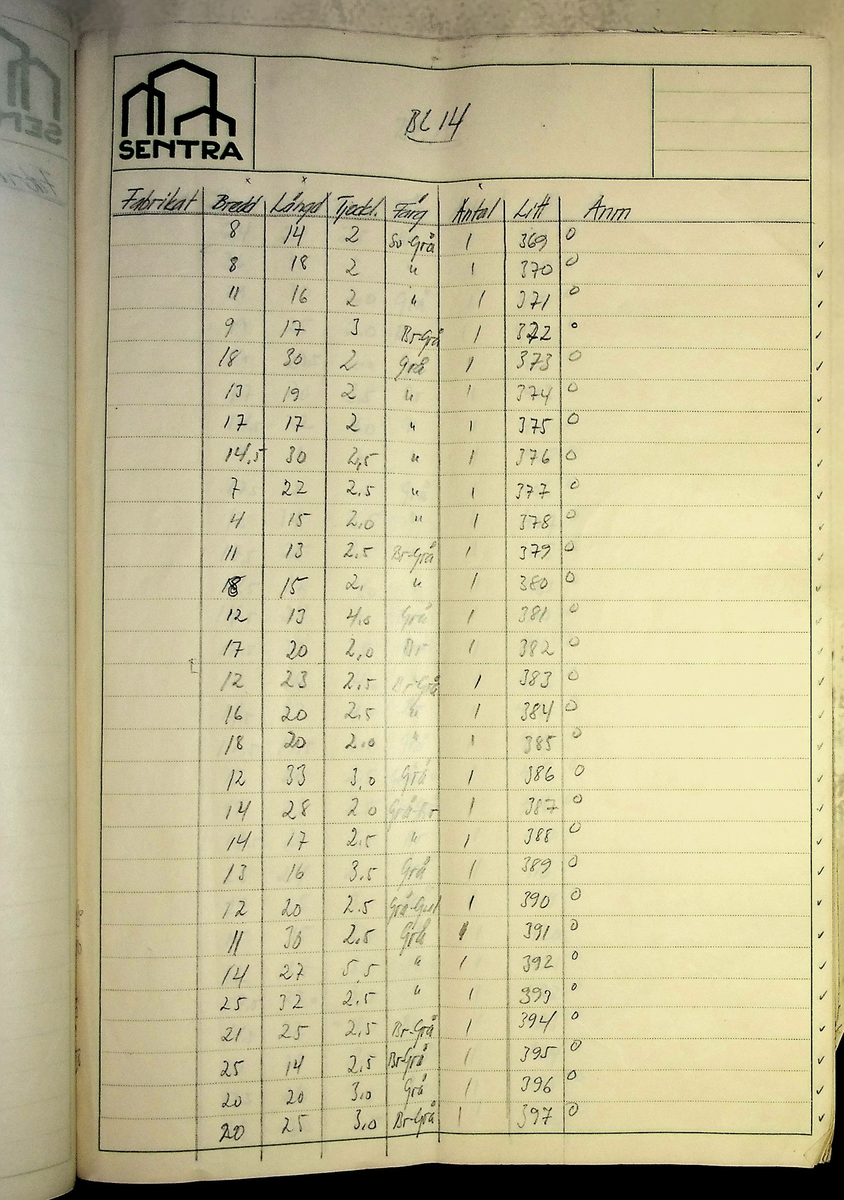 SENTRA
BL 14
Fabrikat Bredd Längd Tjockl. Färg Antal Litt Anm
8 14 2 Sv-Grå 1 369 0
8 18 2 " 1 370 0
11 16 2 " 1 371 0
9 17 3 Br-Grå 1 372 0
18 30 2 Grå 1 373 0
13 19 2 " 1 374 0
17 17 2 " 1 375 0
14,5 30 2,5 " 1 376 0
7 22 2.5 " 1 377 0
4 15 2.0 " 1 378 0
11 13 2.5 Br-Grå 1 379 0
15 2. " 1 380 0
12 13 4.0 Grå 1 381 0
17 20 2,0 Br 1 382 0
12 23 2.5 Br-Grå 1 383 0
16 20 2.5 " 1 384 0
18 20 2.0 " 1 385 0
12 33 3,0 Grå 1 386 0
14 28 2.0 Grå-Br 1 387 0
14 17 2.5 " 1 388 0
13 16 3.5 Grå 1 389 0
12 20 2.5 Grå-Gul 1 390 0
11 30 2.5 Grå 1 391 0
14 27 5,5 " 1 392 0
25 32 2.5 " 1 393 0
21 25 2,5 Br-Grå 1 394 0
25 14 2.5 Br-Grå 1 395 0
20 20 3.0 Grå 1 396 0
20 25 3.0 Br-Grå 1 397 0